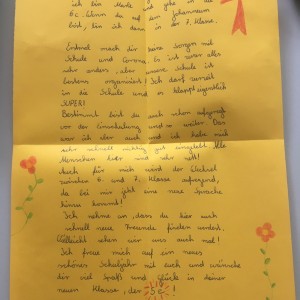 ich bin Marla und gehe in die
6c. Wenn du auf dem Johanneum
bist, bin ich dann in der 7. Klasse.
Erstmal mach dir keine Sorgen mit
Schule und Corona. Es ist zwar alles
sehr anders, aber unsere Schule ist
bestens organisiert! Ich darf zurzeit
in die Schule und es klappt eigentlich
SUPER!
Bestimmt bist du auch schon aufgeregt
vor der Einschulung und so weiter. Das
war ich aber auch und ich habe mich
sehr schnell richtig gut eingelebt. Alle
Menschen hier sind sehr nett!
Auch für mich wird der Wechsel
zwischen 6. und 7. Klasse aufregend,
da bei mir jetzt eine neue Sprache
hinzu kommt!
Ich nehme an, dass du hier auch
schnell neue Freunde finden wirst.
Vielleicht sehen wir uns auch mal!
Ich freue mich auf ein neues
schönes Schuljahr mit euch und wünsche
dir viel Spaß und Glück in deiner
neuen Klasse, der